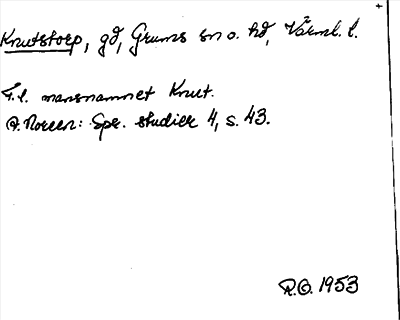 Knutstorp, gd, Grums sn o. hd, Värml. l.
F.l. mansnamnet Knut.
A. Noreen: Spr. studier 4, s. 43.
R.O. 1953